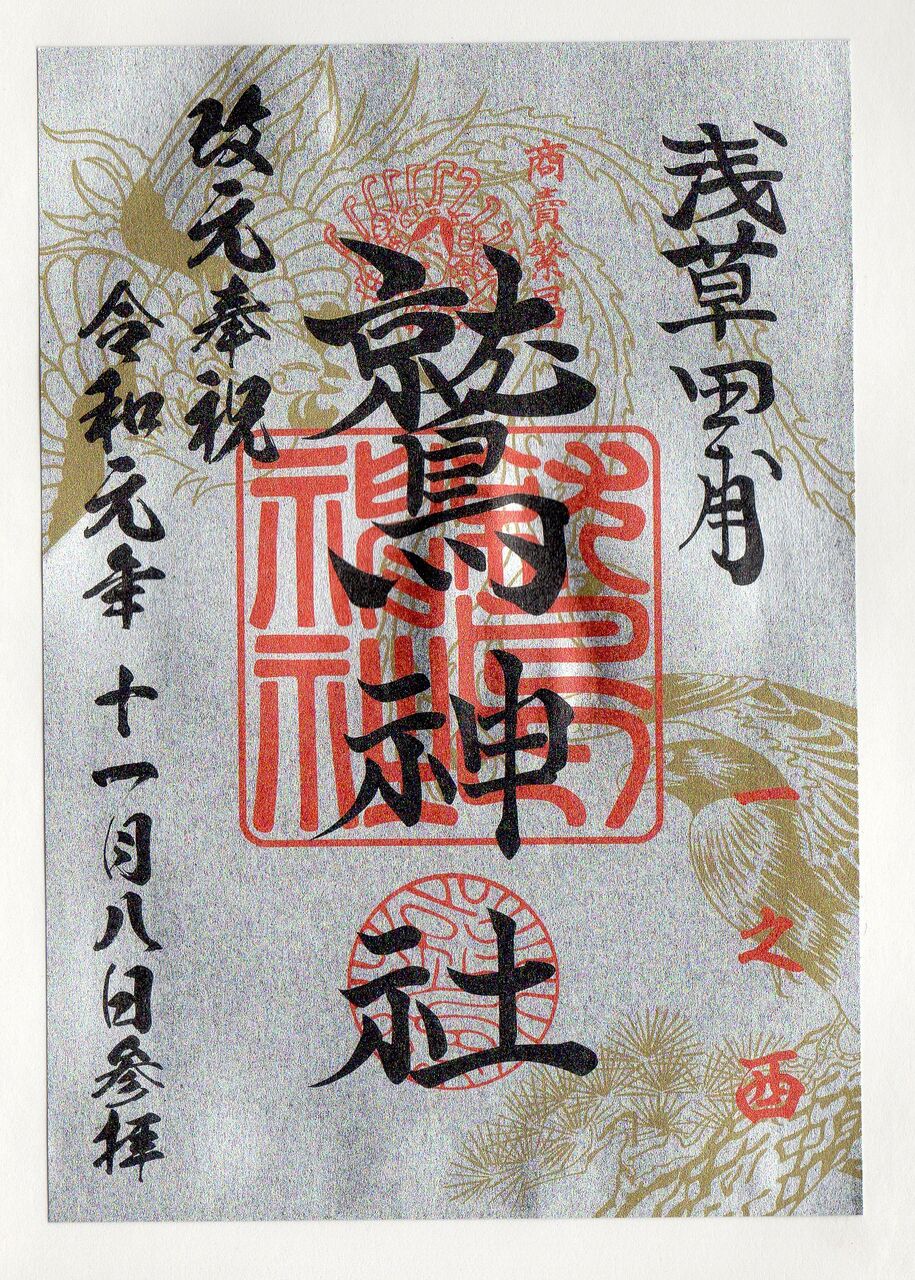 浅草田甫
一之酉
商賣繁昌
鷲神社
鷲神社
改元奉祝
令和元年 十一月八日参拝